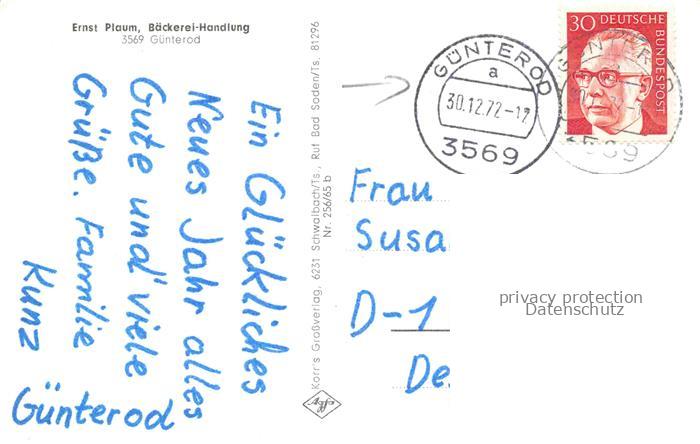 Ernst Plaum, Bäckerei-Handlung
3569 Günterod
Ein Glückliches
Neues Jahr alles
Gute und viele
Grüße. Familie
Kunz
Günterod
Korr's Großverlag, 6231 Schwalbach/Ts., Ruf Bad Soden/Ts. 81296
Nr. 256/65 b
Agfa
GÜNTEROD
a
30.12.72-17
3569
30 DEUTSCHE
BUNDESPOST
Frau
Susa
D-1
De
privacy protection
Datenschutz